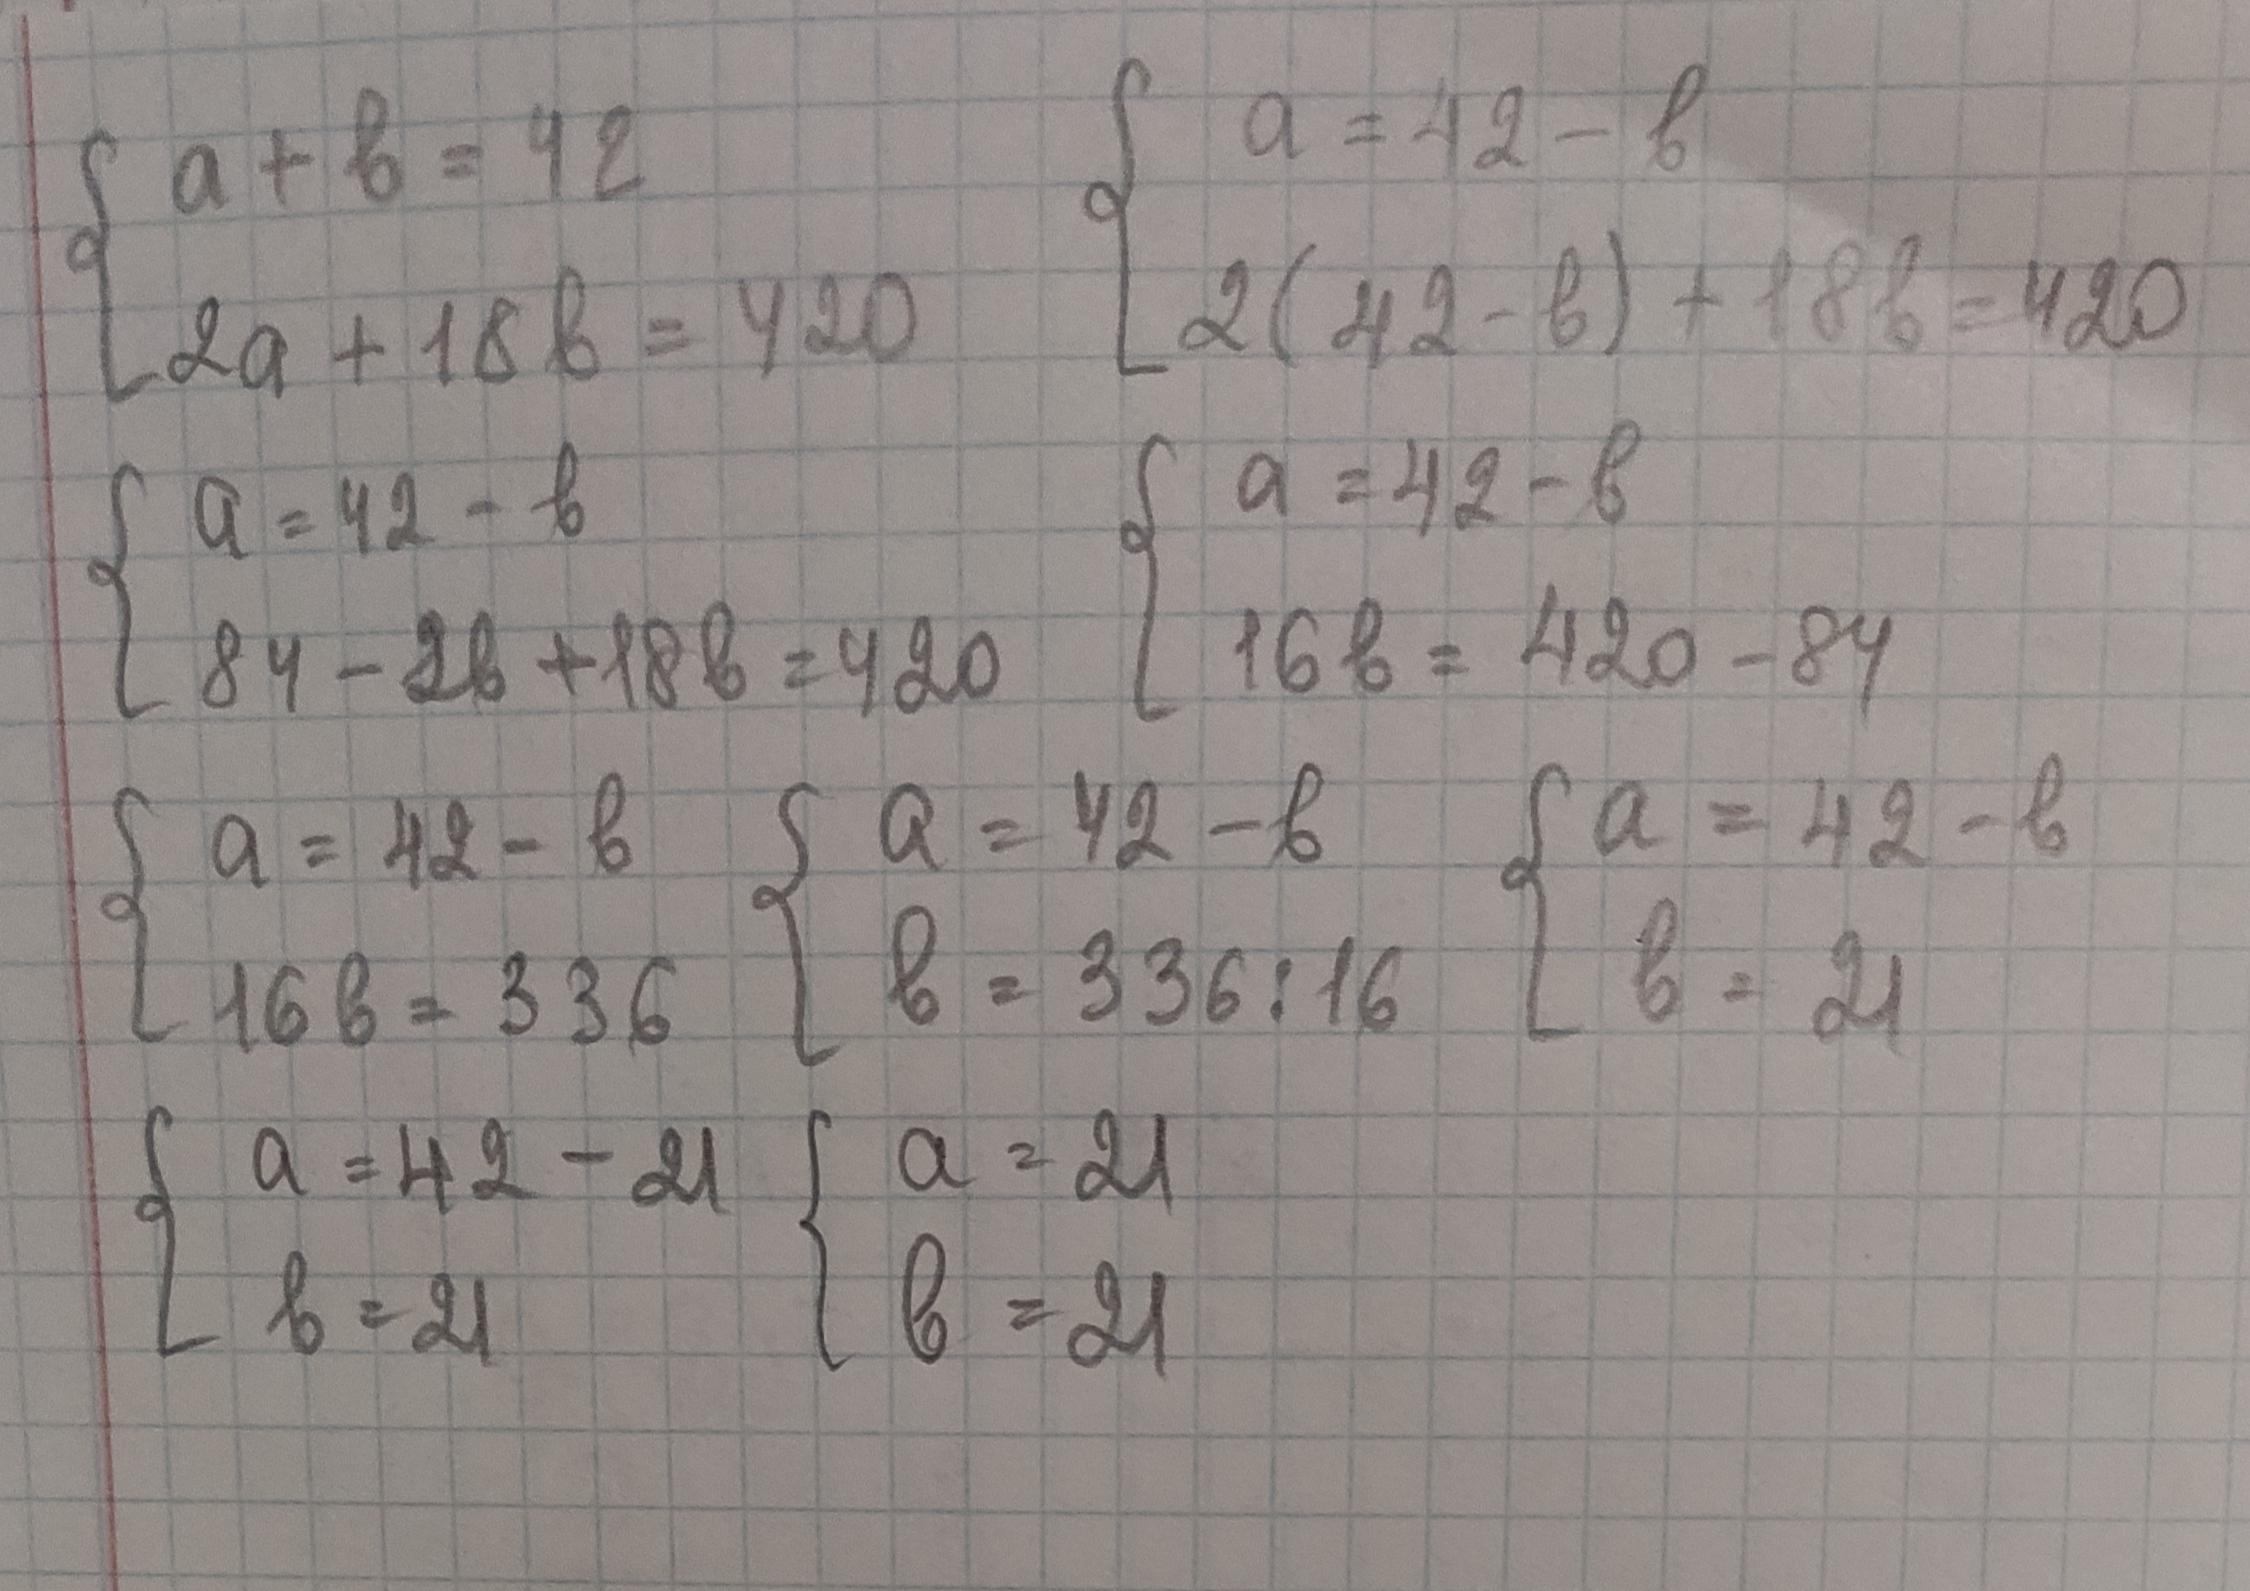 a + b = 42
2a + 18b = 420
a = 42 - b
2(42 - b) + 18b = 420
a = 42 - b
84 - 2b + 18b = 420
a = 42 - b
16b = 420 - 84
a = 42 - b
16b = 336
a = 42 - b
b = 336 : 16
a = 42 - b
b = 21
a = 42 - 21
b = 21
a = 21
b = 21